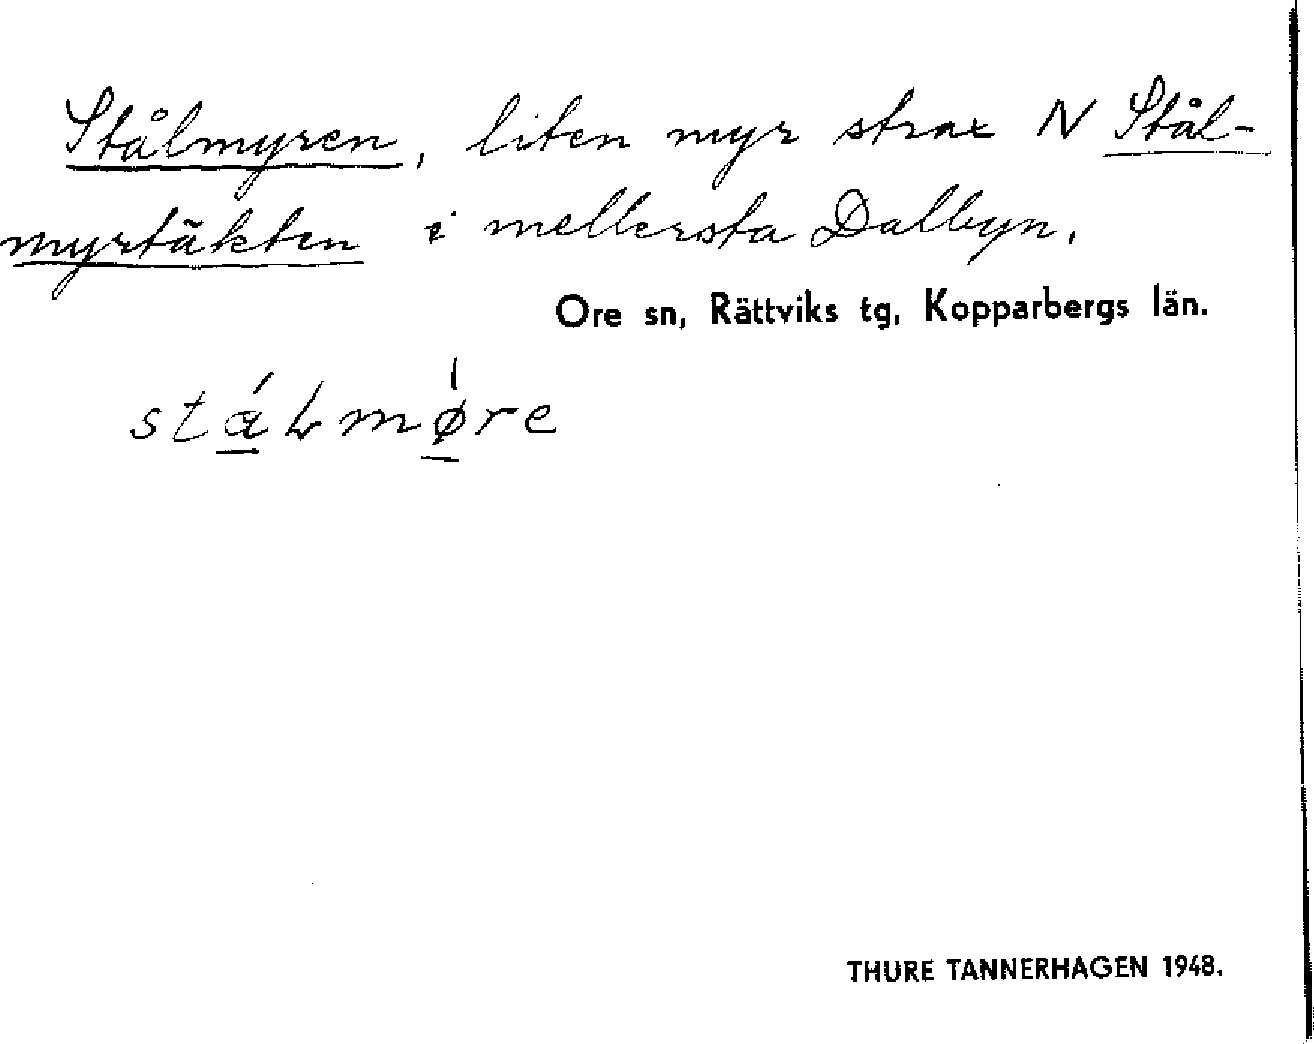 Stålmyren, liten myr strax N Stål-
myrtäkten i mellersta Dalbyn.
Ore sn, Rättviks tg, Kopparbergs län.
THURE TANNERHAGEN 1948.